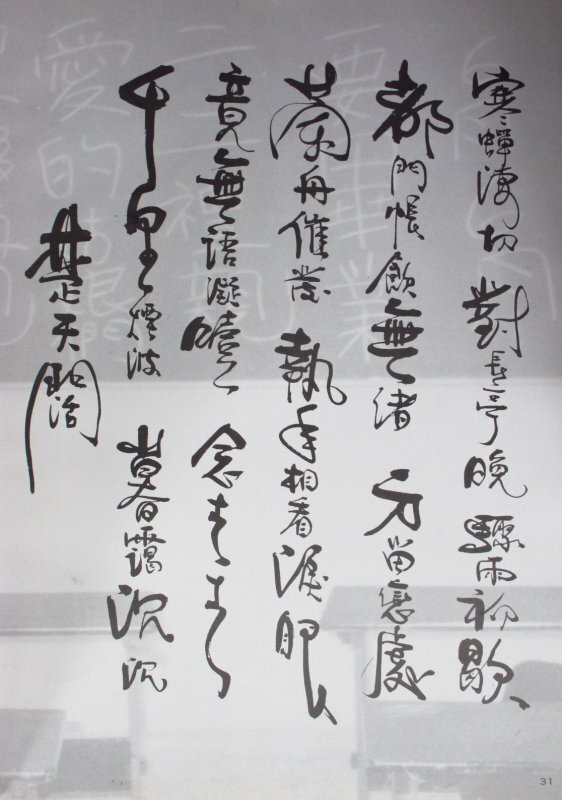 寒蟬淒切 對長亭晚 驟雨初歇
都門帳飲無緒 方留戀處
蘭舟催發 執手相看淚眼
竟無語凝噎 念去去
千里煙波 暮靄沉沉
楚天闊
要畢業
愛的
31